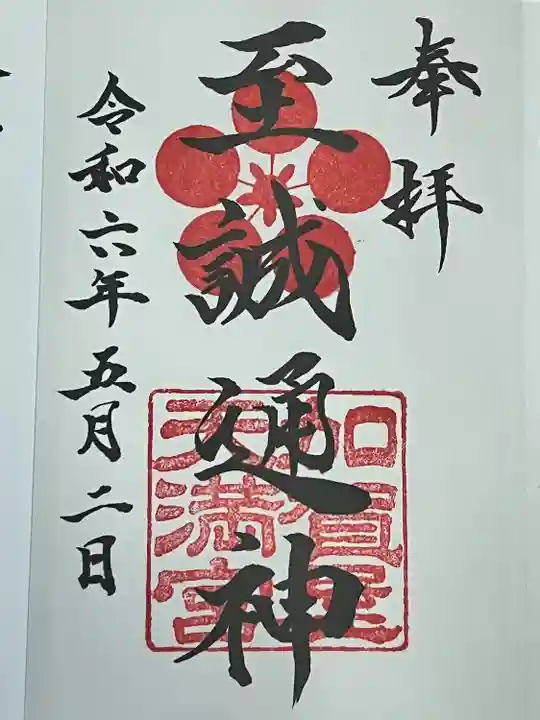 奉拝
至誠通神
加賀屋
天満宮
令和六年五月二日